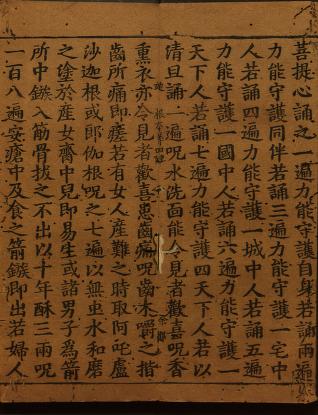 菩提心誦之一遍力能守護自身若誦兩遍
力能守護同伴若誦三遍力能守護一宅中
人若誦四遍力能守護一城中人若誦五遍
力能守護一國中人若誦六遍力能守護一
天下人若誦七遍力能守護四天下人若以
清旦誦一遍呪水洗面能令見者歡喜呪香
熏衣亦令見者歡喜患齒痛呪齒木嚼之揩
齒所痛即瘥若有女人產難之時取阿吒盧
沙迦根或郎伽根呪之七遍以無虫水和磨
之塗於產女臍中兒即易生或諸男子為箭
所中鏃入筋骨拔之不出以十年酥三兩呪
一百八遍安瘡中及食之箭鏃即出若婦人